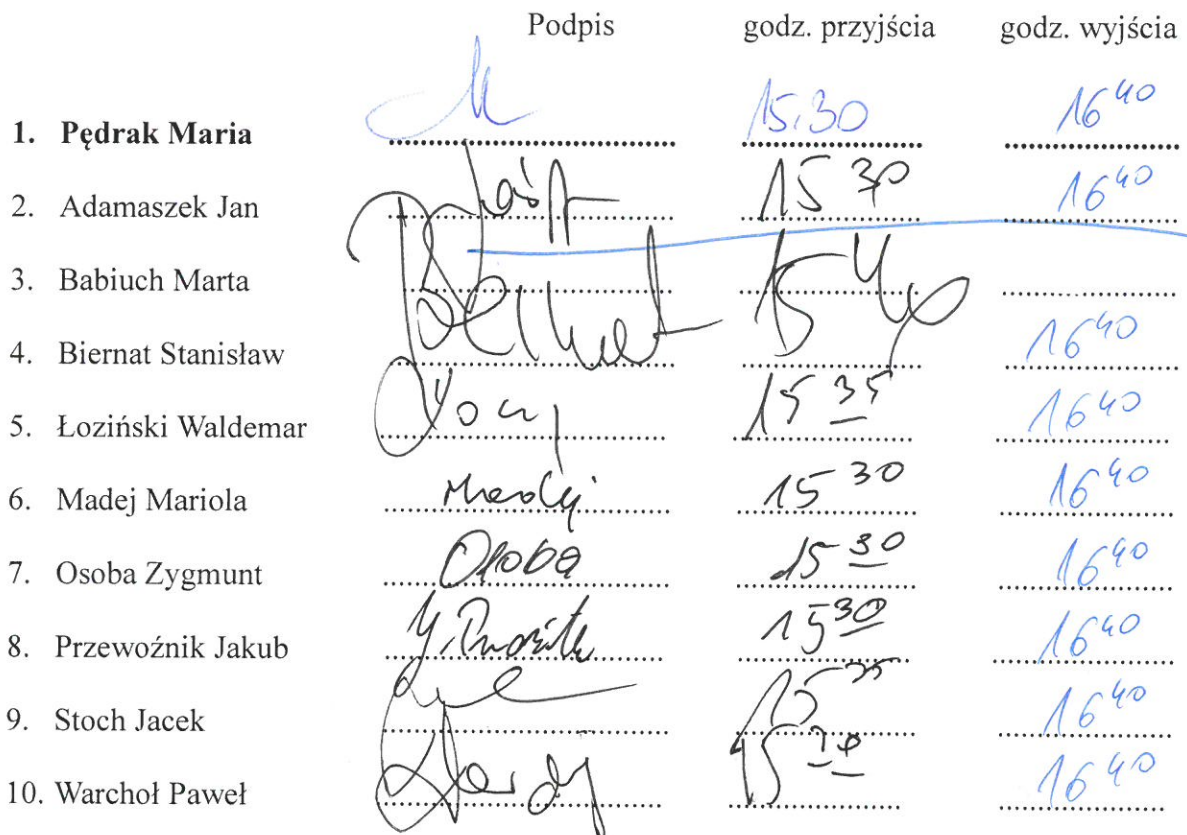 Podpis godz. przyjścia godz. wyjścia
1. Pędrak Maria 15:30 16 40
2. Adamaszek Jan 15 30 16 40
3. Babiuch Marta
4. Biernat Stanisław 16 40
5. Łoziński Waldemar 15 35 16 40
6. Madej Mariola Madej 15 30 16 40
7. Osoba Zygmunt Osoba 15 30 16 40
8. Przewoźnik Jakub 15 30 16 40
9. Stoch Jacek 16 40
10. Warchoł Paweł 16 40